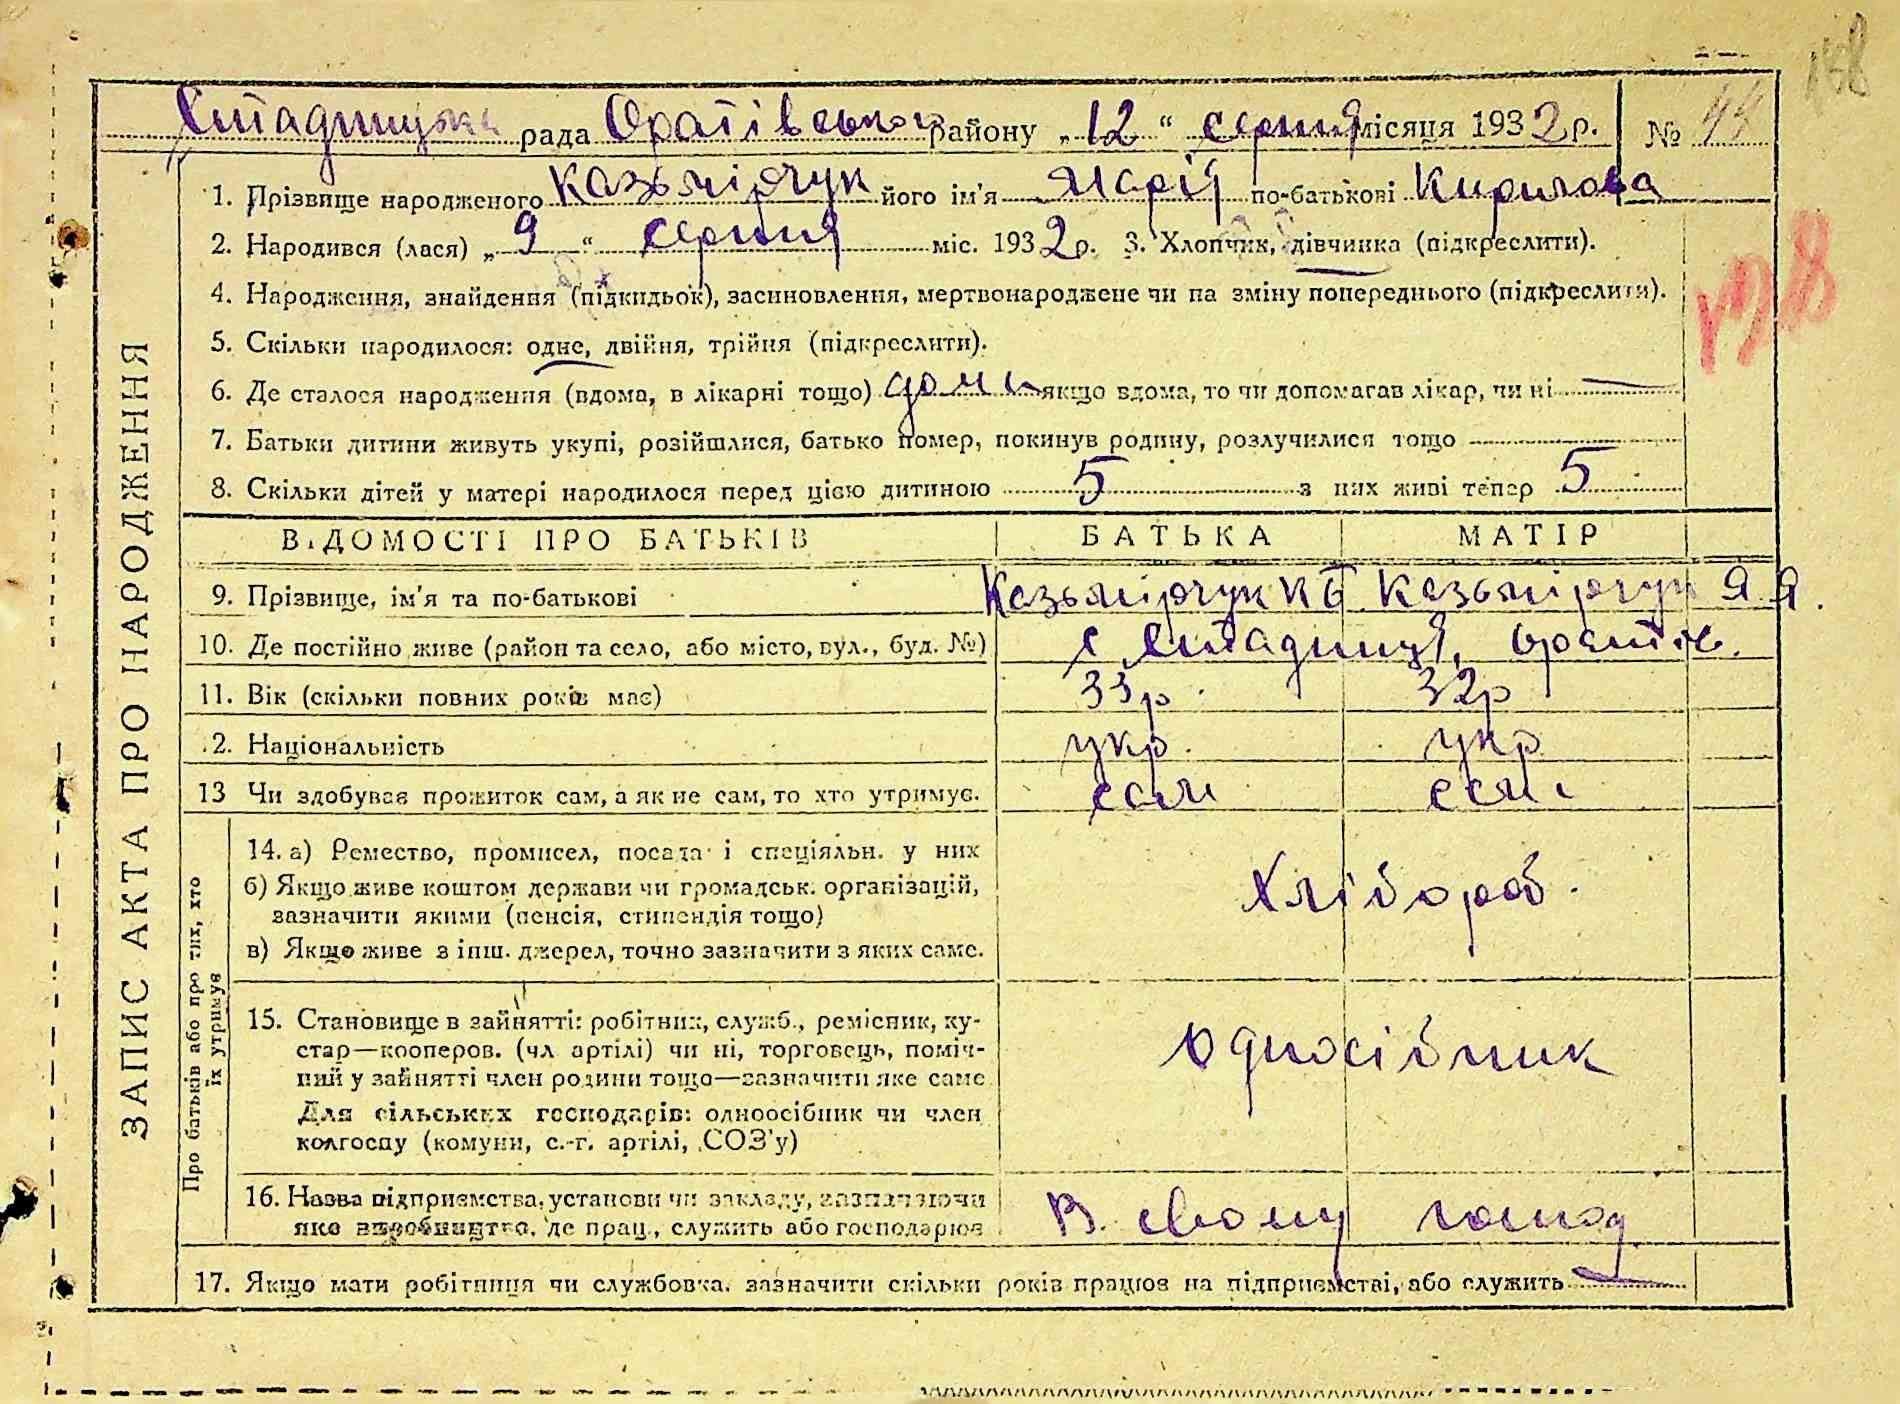 158
Скитадицька рада Оратівського району „12“ серпня місяця 1932 р. № 44
1. Прізвище народженого Казьмірчук його ім'я Марія по-батькові Кирилова
2. Народився (лася) „9“ серпня міс. 1932 р. 3. Хлопчик, дівчинка (підкреслити).
4. Народження, знайдення (підкидьок), засиновлення, мертвонароджене чи на зміну попереднього (підкреслити).
5. Скільки народилося: одне, двійня, трійня (підкреслити).
6. Де сталося народження (вдома, в лікарні тощо) дома якщо вдома, то чи допомагав лікар, чи ні —
7. Батьки дитини живуть укупі, розійшлися, батько помер, покинув родину, розлучилися тощо
8. Скільки дітей у матері народилося перед цією дитиною 5 з них живі тепер 5
ВІДОМОСТІ ПРО БАТЬКІВ БАТЬКА МАТІР
9. Прізвище, ім'я та по-батькові Казьмірчук К Б Казьмірчук Я Я.
10. Де постійно живе (район та село, або місто, вул., буд. №) с Скитадинці, Оратів.
11. Вік (скільки повних років має) 33р. 32р
12. Національність укр. укр
13 Чи здобував прожиток сам, а як не сам, то хто утримує. сам сама
14. а) Ремество, промисел, посада і спеціяльн. у них
б) Якщо живе коштом держави чи громадськ. організацій,
зазначити якими (пенсія, стипендія тощо)
в) Якщо живе з інш. джерел, точно зазначити з яких саме.
Хлібороб.
15. Становище в зайнятті: робітник, служб., ремісник, ку-
стар—кооперов. (чл артілі) чи ні, торговець, поміч-
ний у зайнятті член родини тощо—зазначити яке саме
Для сільських господарів: одноосібник чи член
колгоспу (комуни, с.-г. артілі, СОЗ'у)
Односібник
16. Назва підприємства, установи чи закладу, зазначаючи
яке виробництво, де прац., служить або господарює
В свому господ
17. Якщо мати робітниця чи службовка, зазначити скільки років працює на підприємстві, або служить —
ЗАПИС АКТА ПРО НАРОДЖЕННЯ
Про батьків або про тих, хто
їх утримує